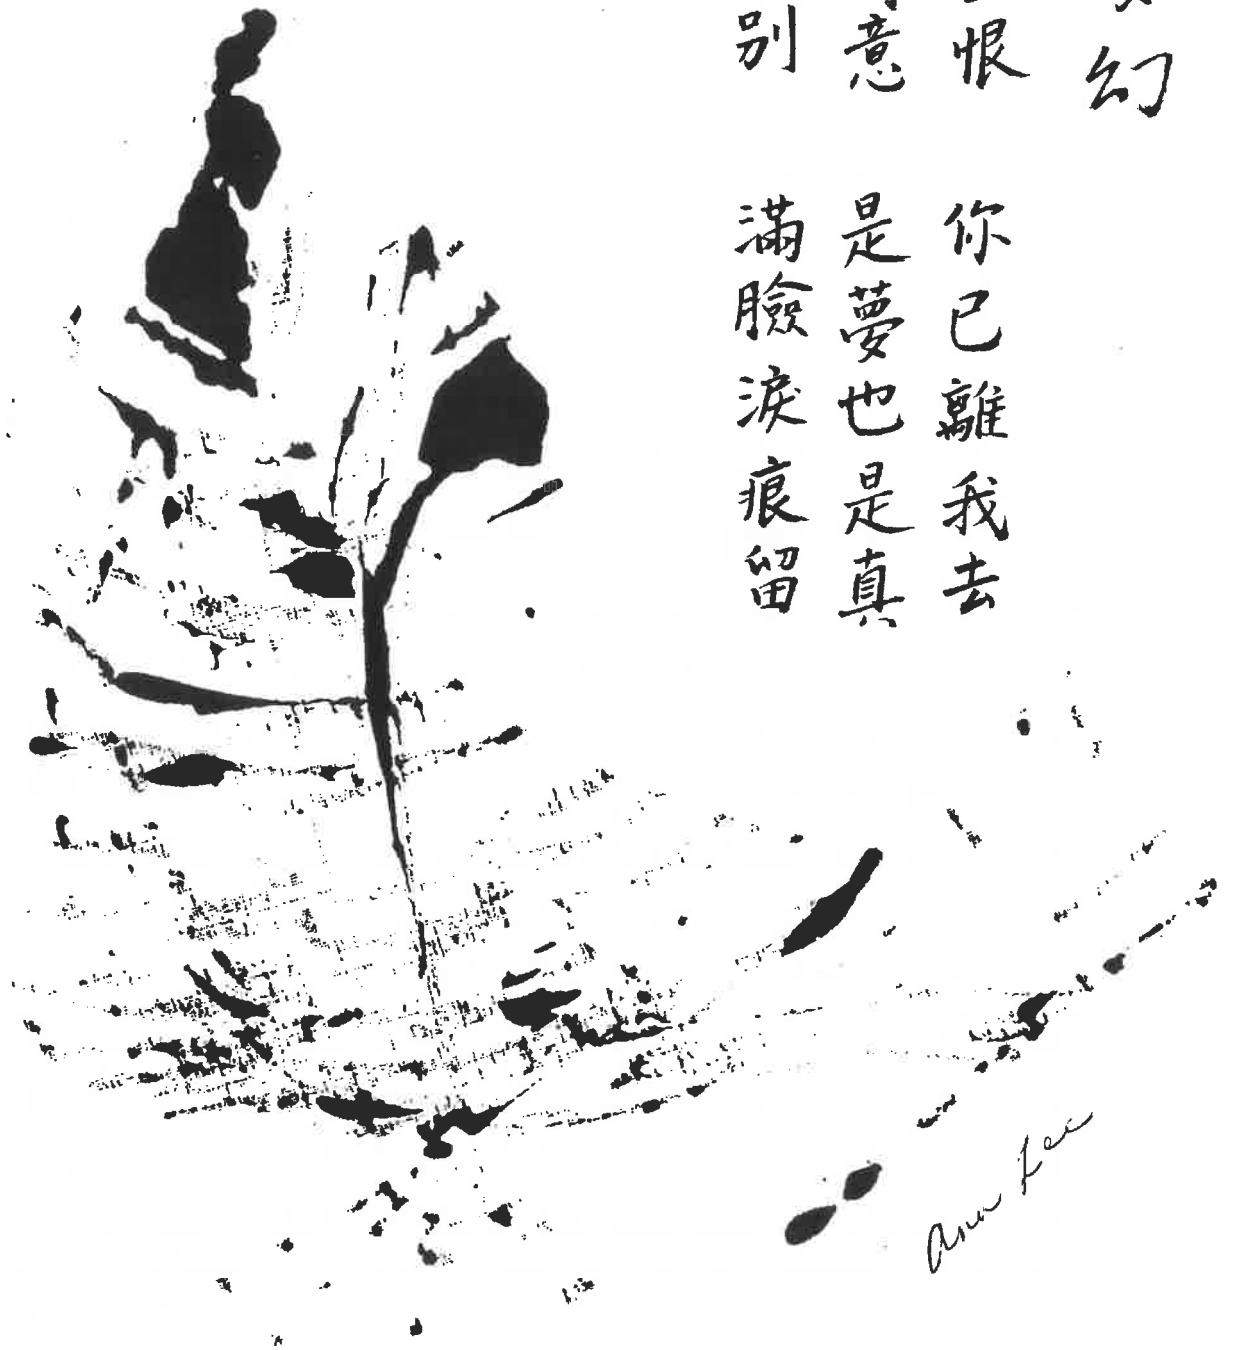 幻
恨 你已離我去
意 是夢也是真
別 滿臉淚痕留
Ann Lee